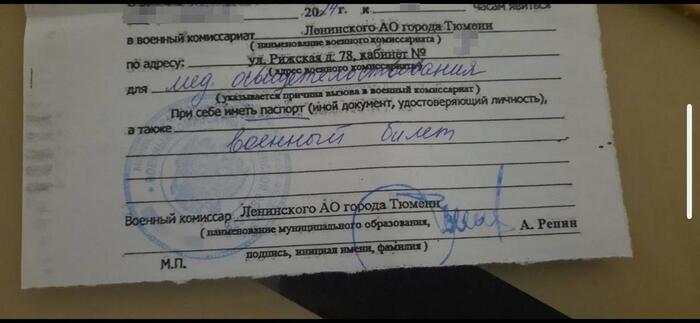 2024 г. к часам явиться
в военный комиссариат Ленинского АО города Тюмени
( наименование военного комиссариата )
по адресу: ул. Рижская д. 78, кабинет №
( адрес военного комиссариата )
для мед. освидетельствования
( указывается причина вызова в военный комиссариат )
При себе иметь паспорт (иной документ, удостоверяющий личность),
а также военный билет
Военный комиссар Ленинского АО города Тюмени
( наименование муниципального образования,
А. Репин
подпись, инициал имени, фамилия )
М.П.